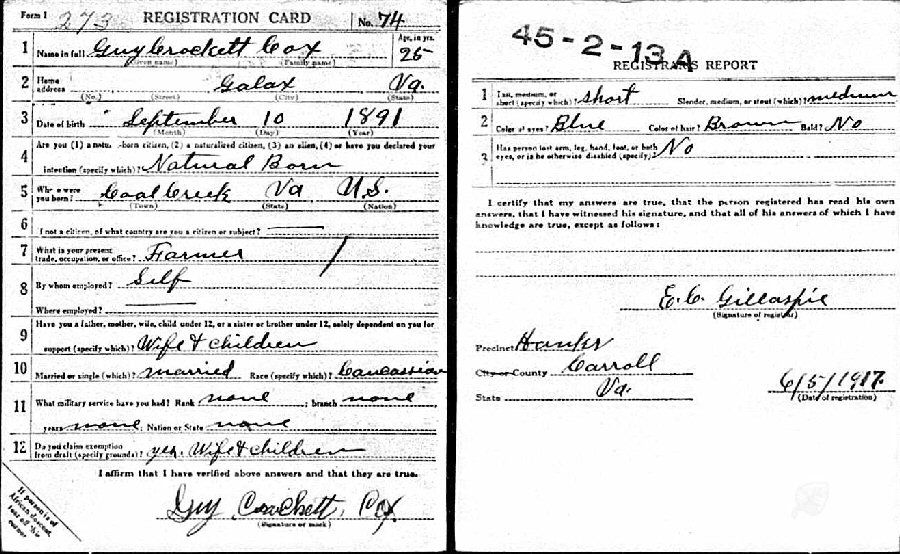 Form 1 273 REGISTRATION CARD No. 74
1 Name in full Guy Crockett Cox Age, in yrs. 25
(Given name) (Family name)
2 Home address Galax Va.
(No.) (Street) (City) (State)
3 Date of birth September 10 1891
(Month) (Day) (Year)
4 Are you (1) a natural-born citizen, (2) a naturalized citizen, (3) an alien, (4) or have you declared your
intention (specify which)? Natural Born
5 Where were you born? Coal Creek Va U.S.
(Town) (State) (Nation)
6 If not a citizen, of what country are you a citizen or subject?
7 What is your present trade, occupation, or office? Farmer
8 By whom employed? Self
Where employed?
9 Have you a father, mother, wife, child under 12, or a sister or brother under 12, solely dependent on you for
support (specify which)? Wife & children
10 Married or single (which)? married Race (specify which)? Caucassian
11 What military service have you had? Rank none ; branch none
years none ; Nation or State none
12 Do you claim exemption from draft (specify grounds)? yes, Wife & children
I affirm that I have verified above answers and that they are true.
Guy Crockett, Cox
(Signature or mark)
If person is of
African descent,
tear off this
corner
45-2-13 A
REGISTRAR'S REPORT
1 Tall, medium, or short (specify which)? short Slender, medium, or stout (which)? medium
2 Color of eyes? Blue Color of hair? Brown Bald? No
3 Has person lost arm, leg, hand, foot, or both
eyes, or is he otherwise disabled (specify)? No
I certify that my answers are true, that the person registered has read his own
answers, that I have witnessed his signature, and that all of his answers of which I have
knowledge are true, except as follows:
E. C. Gillaspie
(Signature of registrar)
Precinct
City or County Carroll
State Va. 6/5/1917
(Date of registration)